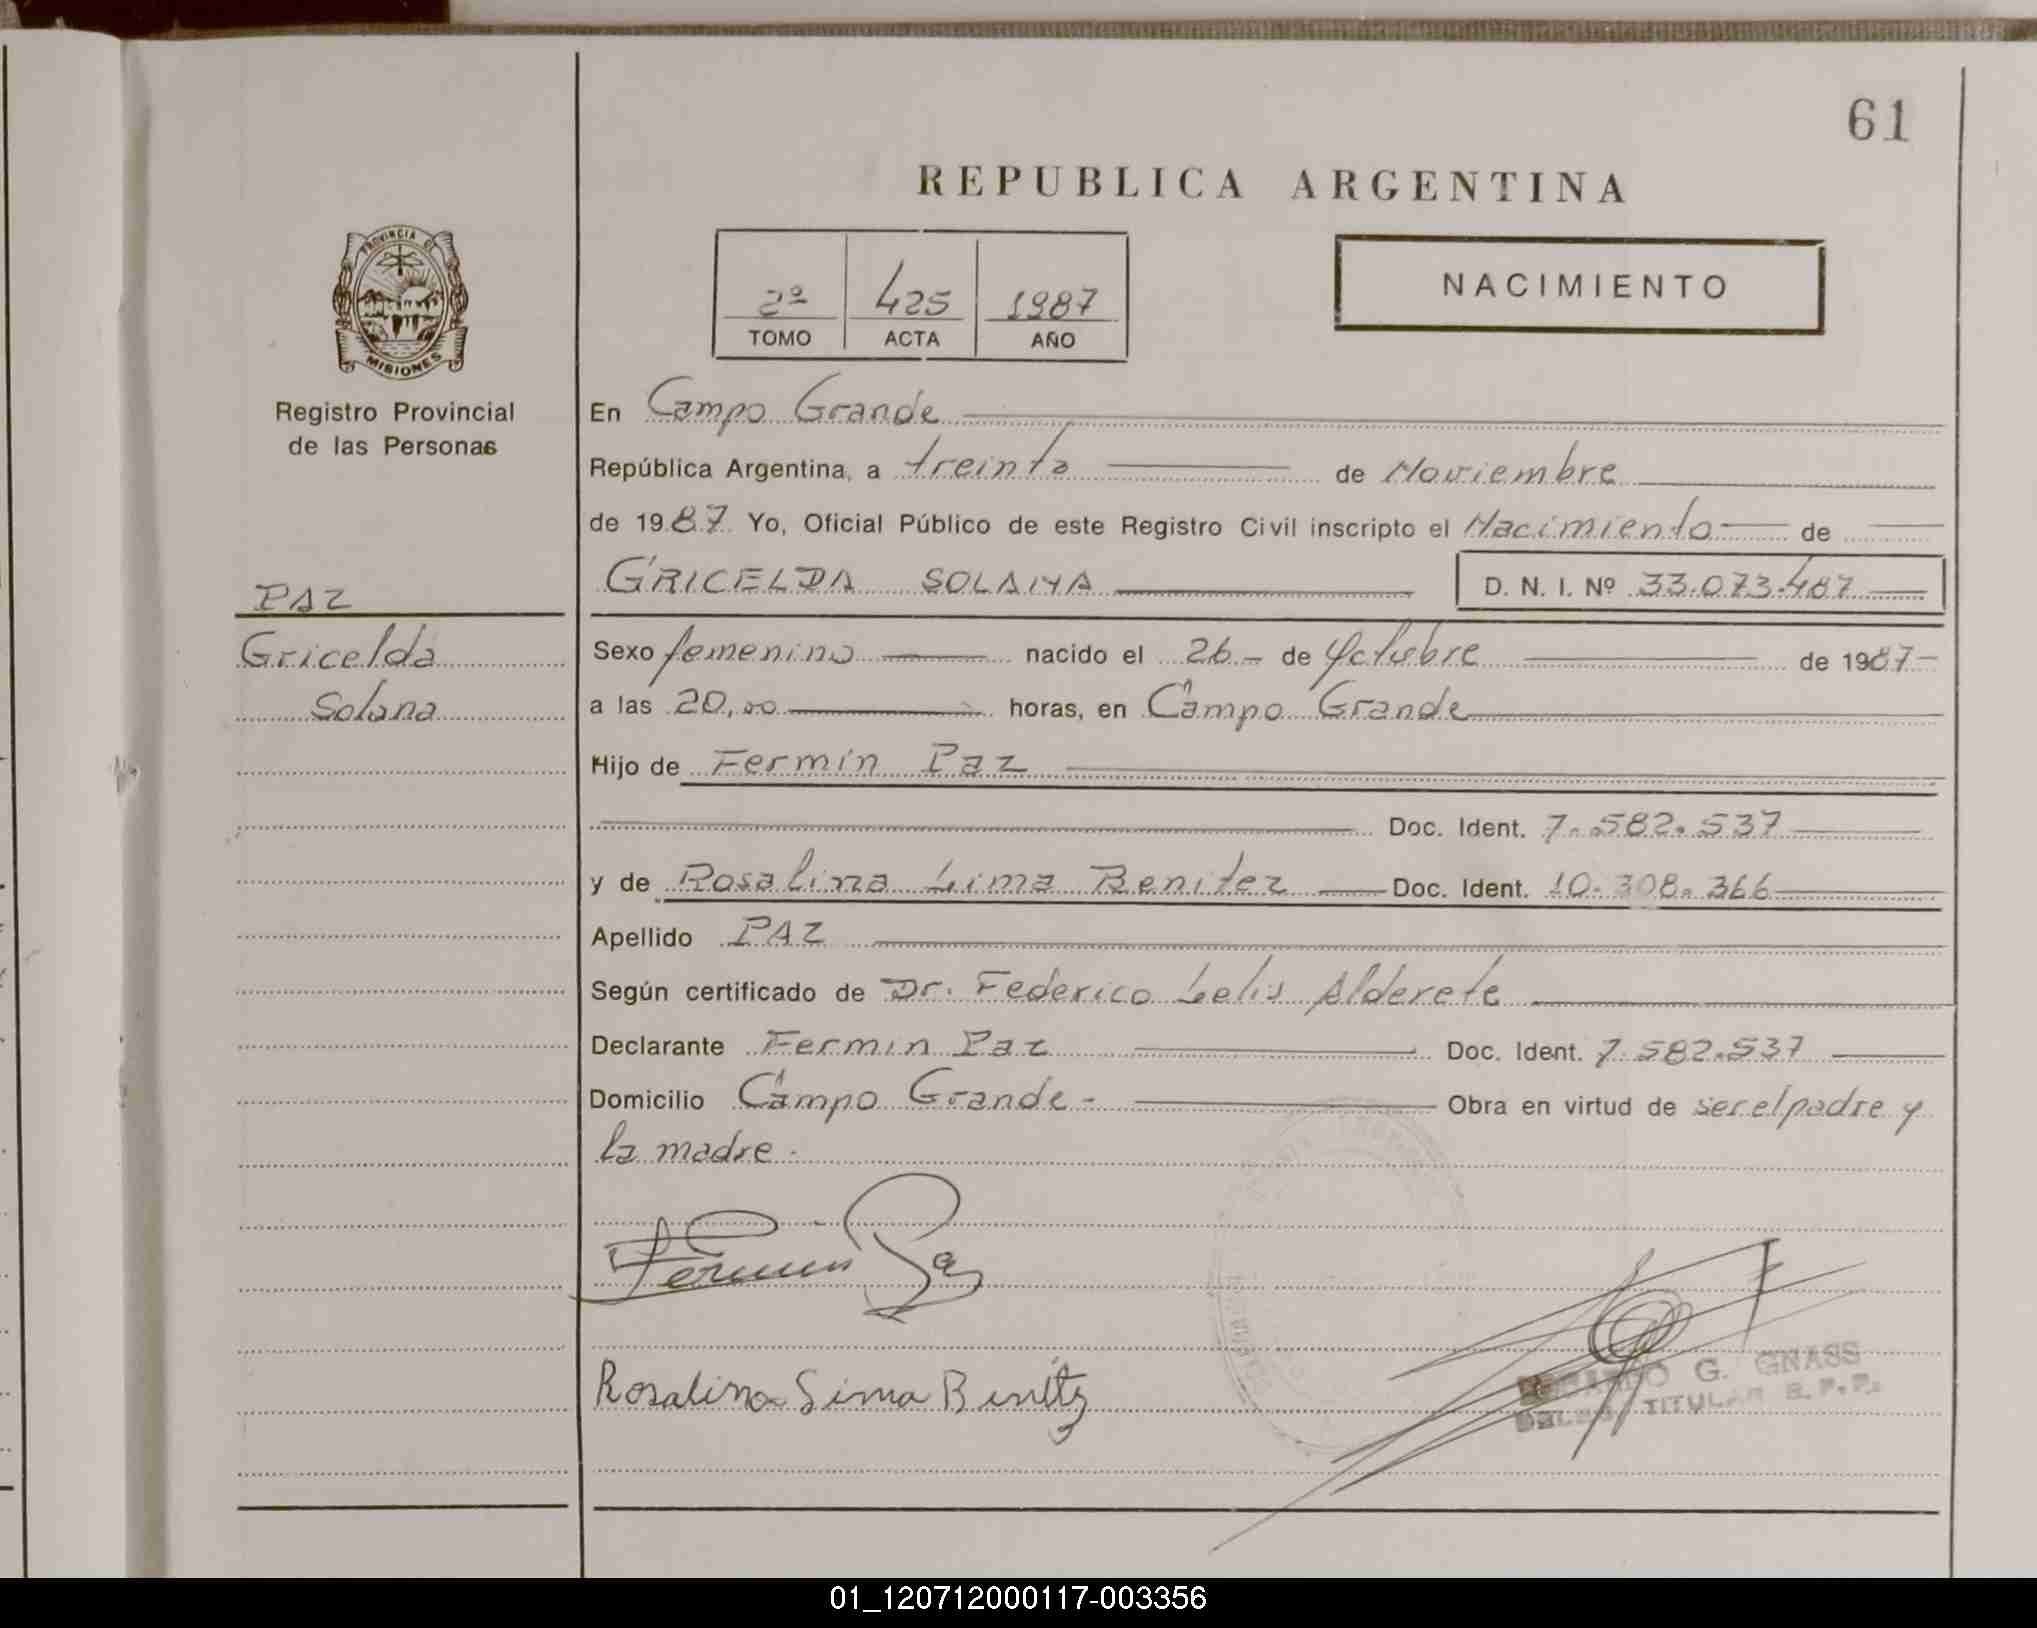 61
REPUBLICA ARGENTINA
2º 425 1987
TOMO ACTA AÑO
NACIMIENTO
PROVINCIA DE
MISIONES
Registro Provincial
de las Personas
PAZ
Gricelda
Solana
En Campo Grande
República Argentina, a treinta de Noviembre
de 1987 Yo, Oficial Público de este Registro Civil inscripto el Nacimiento de
GRICELDA SOLANA D. N. I. Nº 33.073.487
Sexo femenino nacido el 26 - de Octubre de 1987 -
a las 20,00 horas, en Campo Grande
Hijo de Fermín Paz
Doc. Ident. 7.582.537
y de Rosalina Lima Benitez Doc. Ident. 10.308.366
Apellido PAZ
Según certificado de Dr. Federico Lelis Alderete
Declarante Fermin Paz Doc. Ident. 7.582.537
Domicilio Campo Grande - Obra en virtud de ser el padre y
la madre -
Fermin Paz
Rosalina Sima Benitz
G. GNASS
TITULAR R.P.P.
01_120712000117-003356